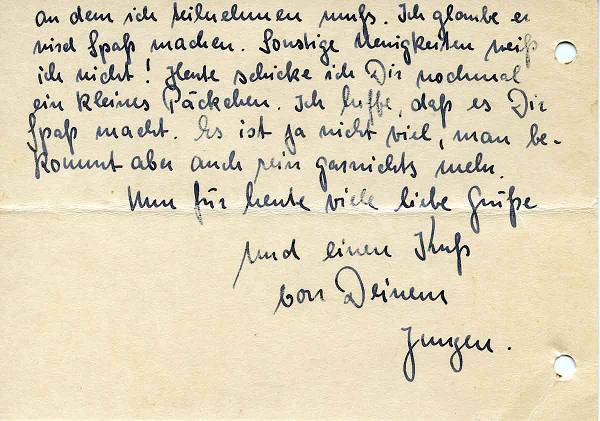 an dem ich teilnehmen muß. Ich glaube er
wird Spaß machen. Sonstige Neuigkeiten weiß
ich nicht! Heute schicke ich Dir nochmal
ein kleines Päckchen. Ich hoffe, daß es Dir
Spaß macht. Es ist ja nicht viel, man be-
kommt aber auch rein garnichts mehr.
Nun für heute viele liebe Grüße
und einen Kuß
von Deinem
Jungen.